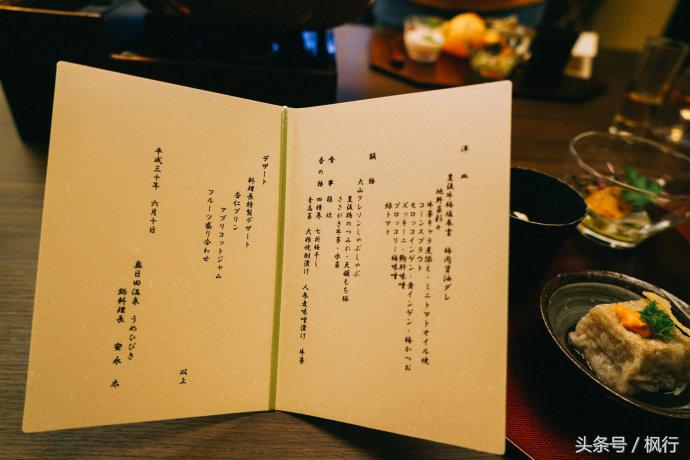 洋皿
豊後牛梅塩麹蒸 梅肉醤油ダレ
地野菜彩々
コーンスプラウト
牛蒡キャラ煮添え・ミニトマトオイル焼
モロッコインゲン・黄インゲン・梅かつお
ズッキーニ・鮑肝味噌
ブロッコリー・梅味噌
緑トマト
鍋物
大山クレソンしゃぶしゃぶ
豊後鶏のつみれ・天領もち豚
ささがき牛蒡・水菜
食事 雑炊
香の物 四種盛 七折梅干し
青高菜 大根焼酎漬け 人参麦味噌漬け 牛蒡
デザート
料理長特製デザート
杏仁プリン
アプリコットジャム
フルーツ盛り合わせ
以上
平成三十年 六月十日
奥日田温泉 うめひびき
総料理長 安永 太
头条号 / 枫行